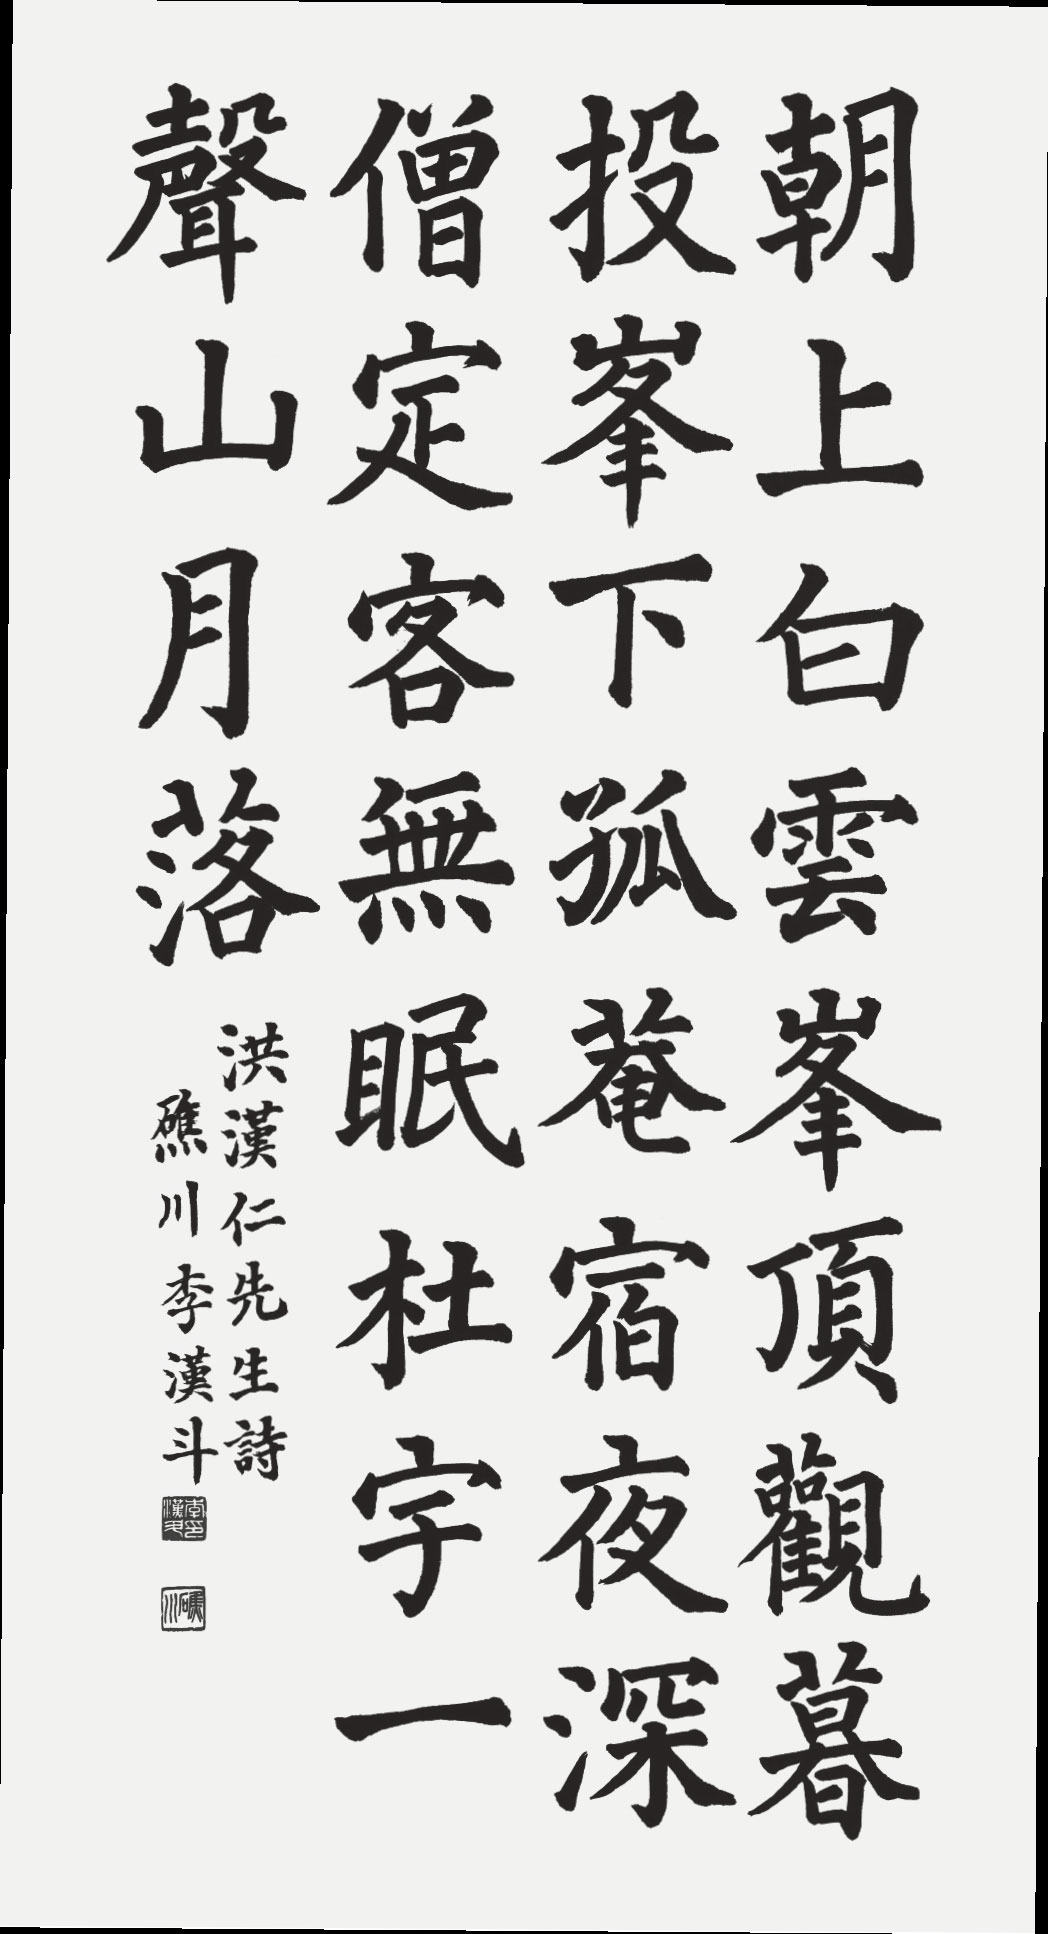 朝上白雲峯頂觀暮
投峯下孤菴宿夜深
僧定客無眠杜宇一
聲山月落
洪漢仁先生詩
礁川李漢斗